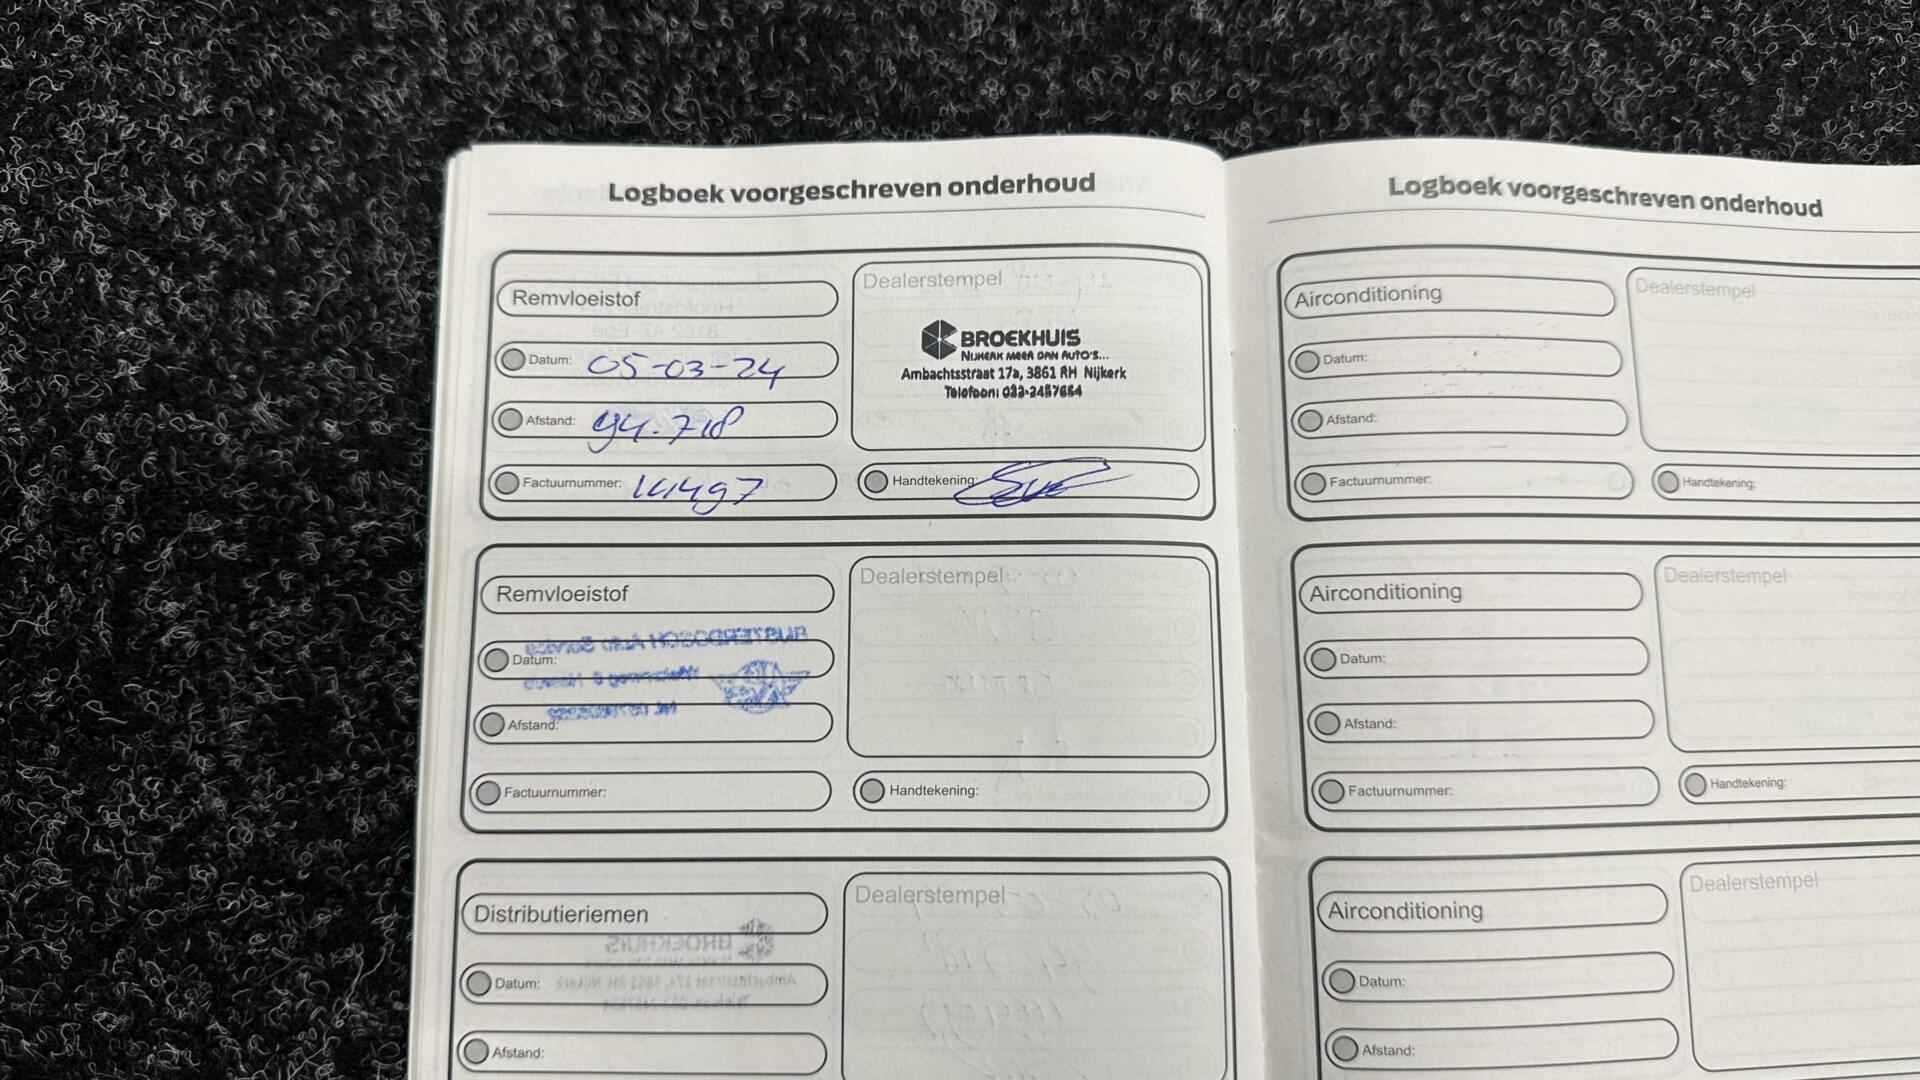 Logboek voorgeschreven onderhoud
Remvloeistof
Datum: 05-03-24
Afstand: 94.718
Factuurnummer:
Dealerstempel
BROEKHUIS
NIJKERK MEER DAN AUTO'S...
Ambachtsstraat 17a, 3861 RH Nijkerk
Telefoon:
Handtekening:
Remvloeistof
Datum:
Afstand:
Factuurnummer:
Dealerstempel
Handtekening:
Distributieriemen
Datum:
Afstand:
Dealerstempel
Logboek voorgeschreven onderhoud
Airconditioning
Datum:
Afstand:
Factuurnummer:
Dealerstempel
Handtekening:
Airconditioning
Datum:
Afstand:
Factuurnummer:
Dealerstempel
Handtekening:
Airconditioning
Datum:
Afstand:
Dealerstempel